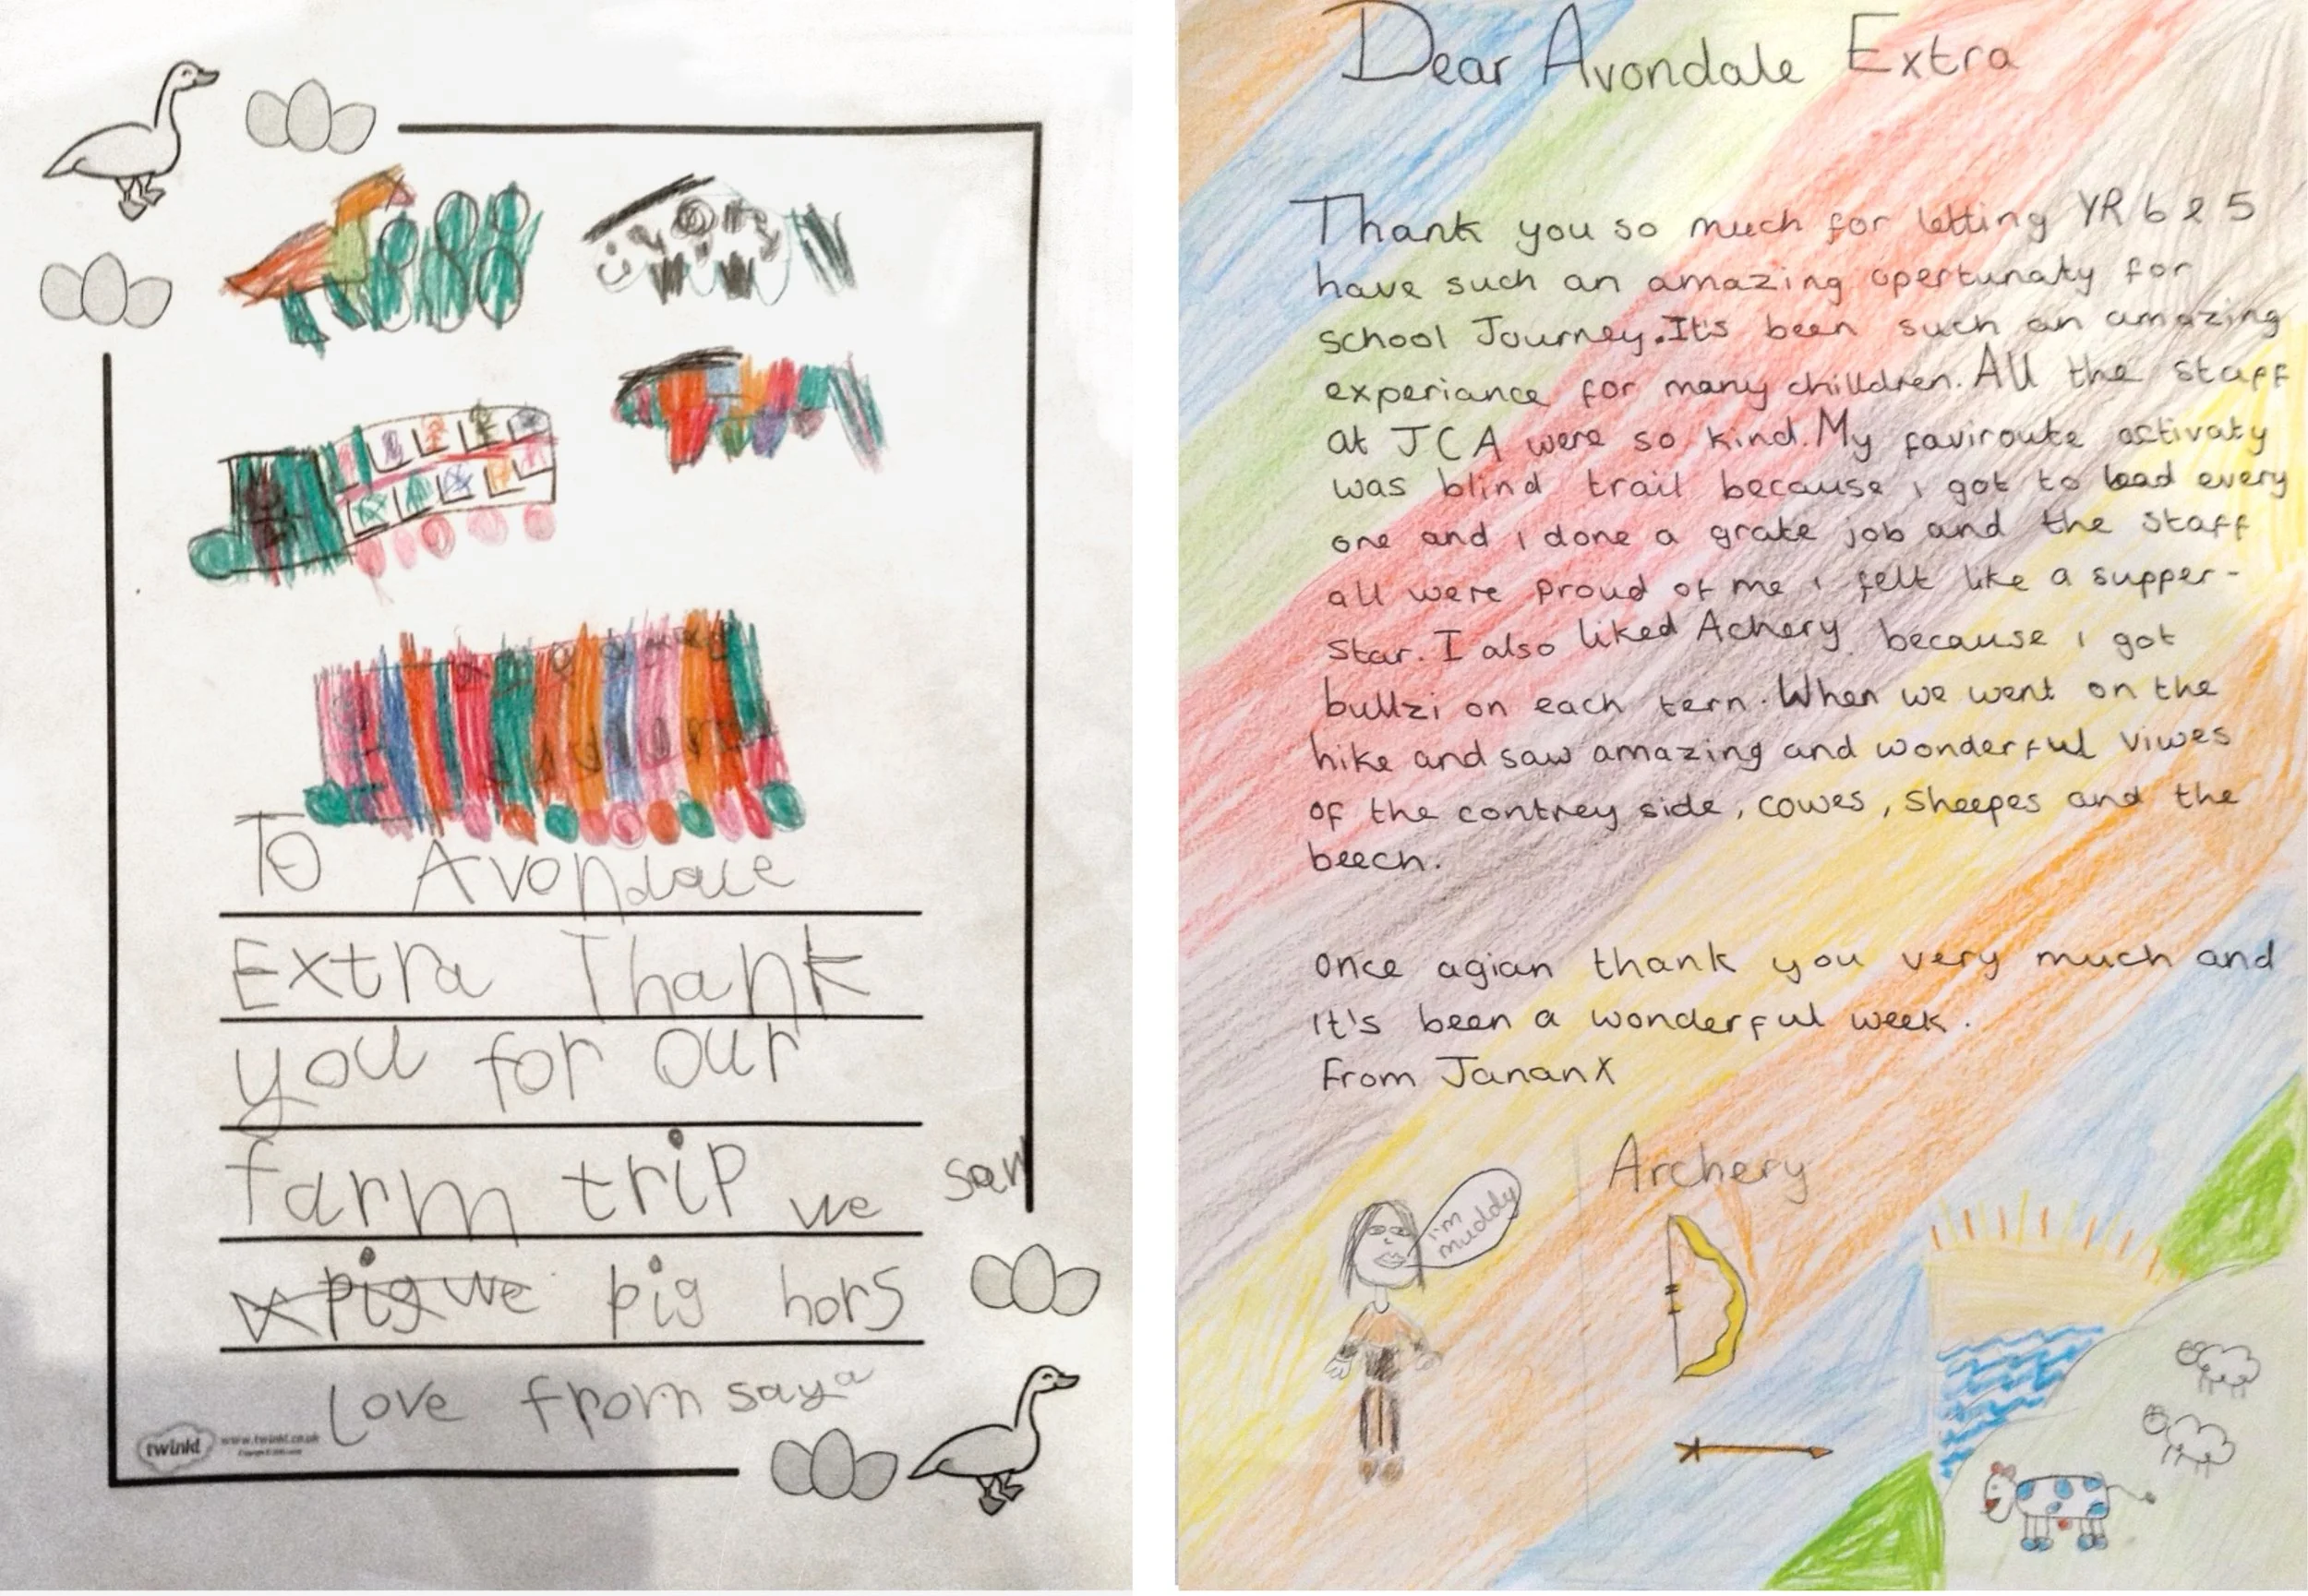 To Avondale
Extra Thank
you for our
farm trip we saw
pig we pig hors
love from saya
twinkl www.twinkl.co.uk
Dear Avondale Extra
Thank you so much for letting YR 6 & 5
have such an amazing opertunaty for
school Journey. It's been such an amazing
experiance for many chilldren. All the staff
at JCA were so kind. My faviroute activaty
was blind trail because i got to lead every
one and i done a grate job and the staff
all were proud of me i felt like a supper-
star. I also liked Achery because i got
bullzi on each tern. When we went on the
hike and saw amazing and wonderful viwes
of the contrey side, cowes, sheepes and the
beech.
Once agian thank you very much and
it's been a wonderful week.
From Janan X
Archery
i'm
muddy